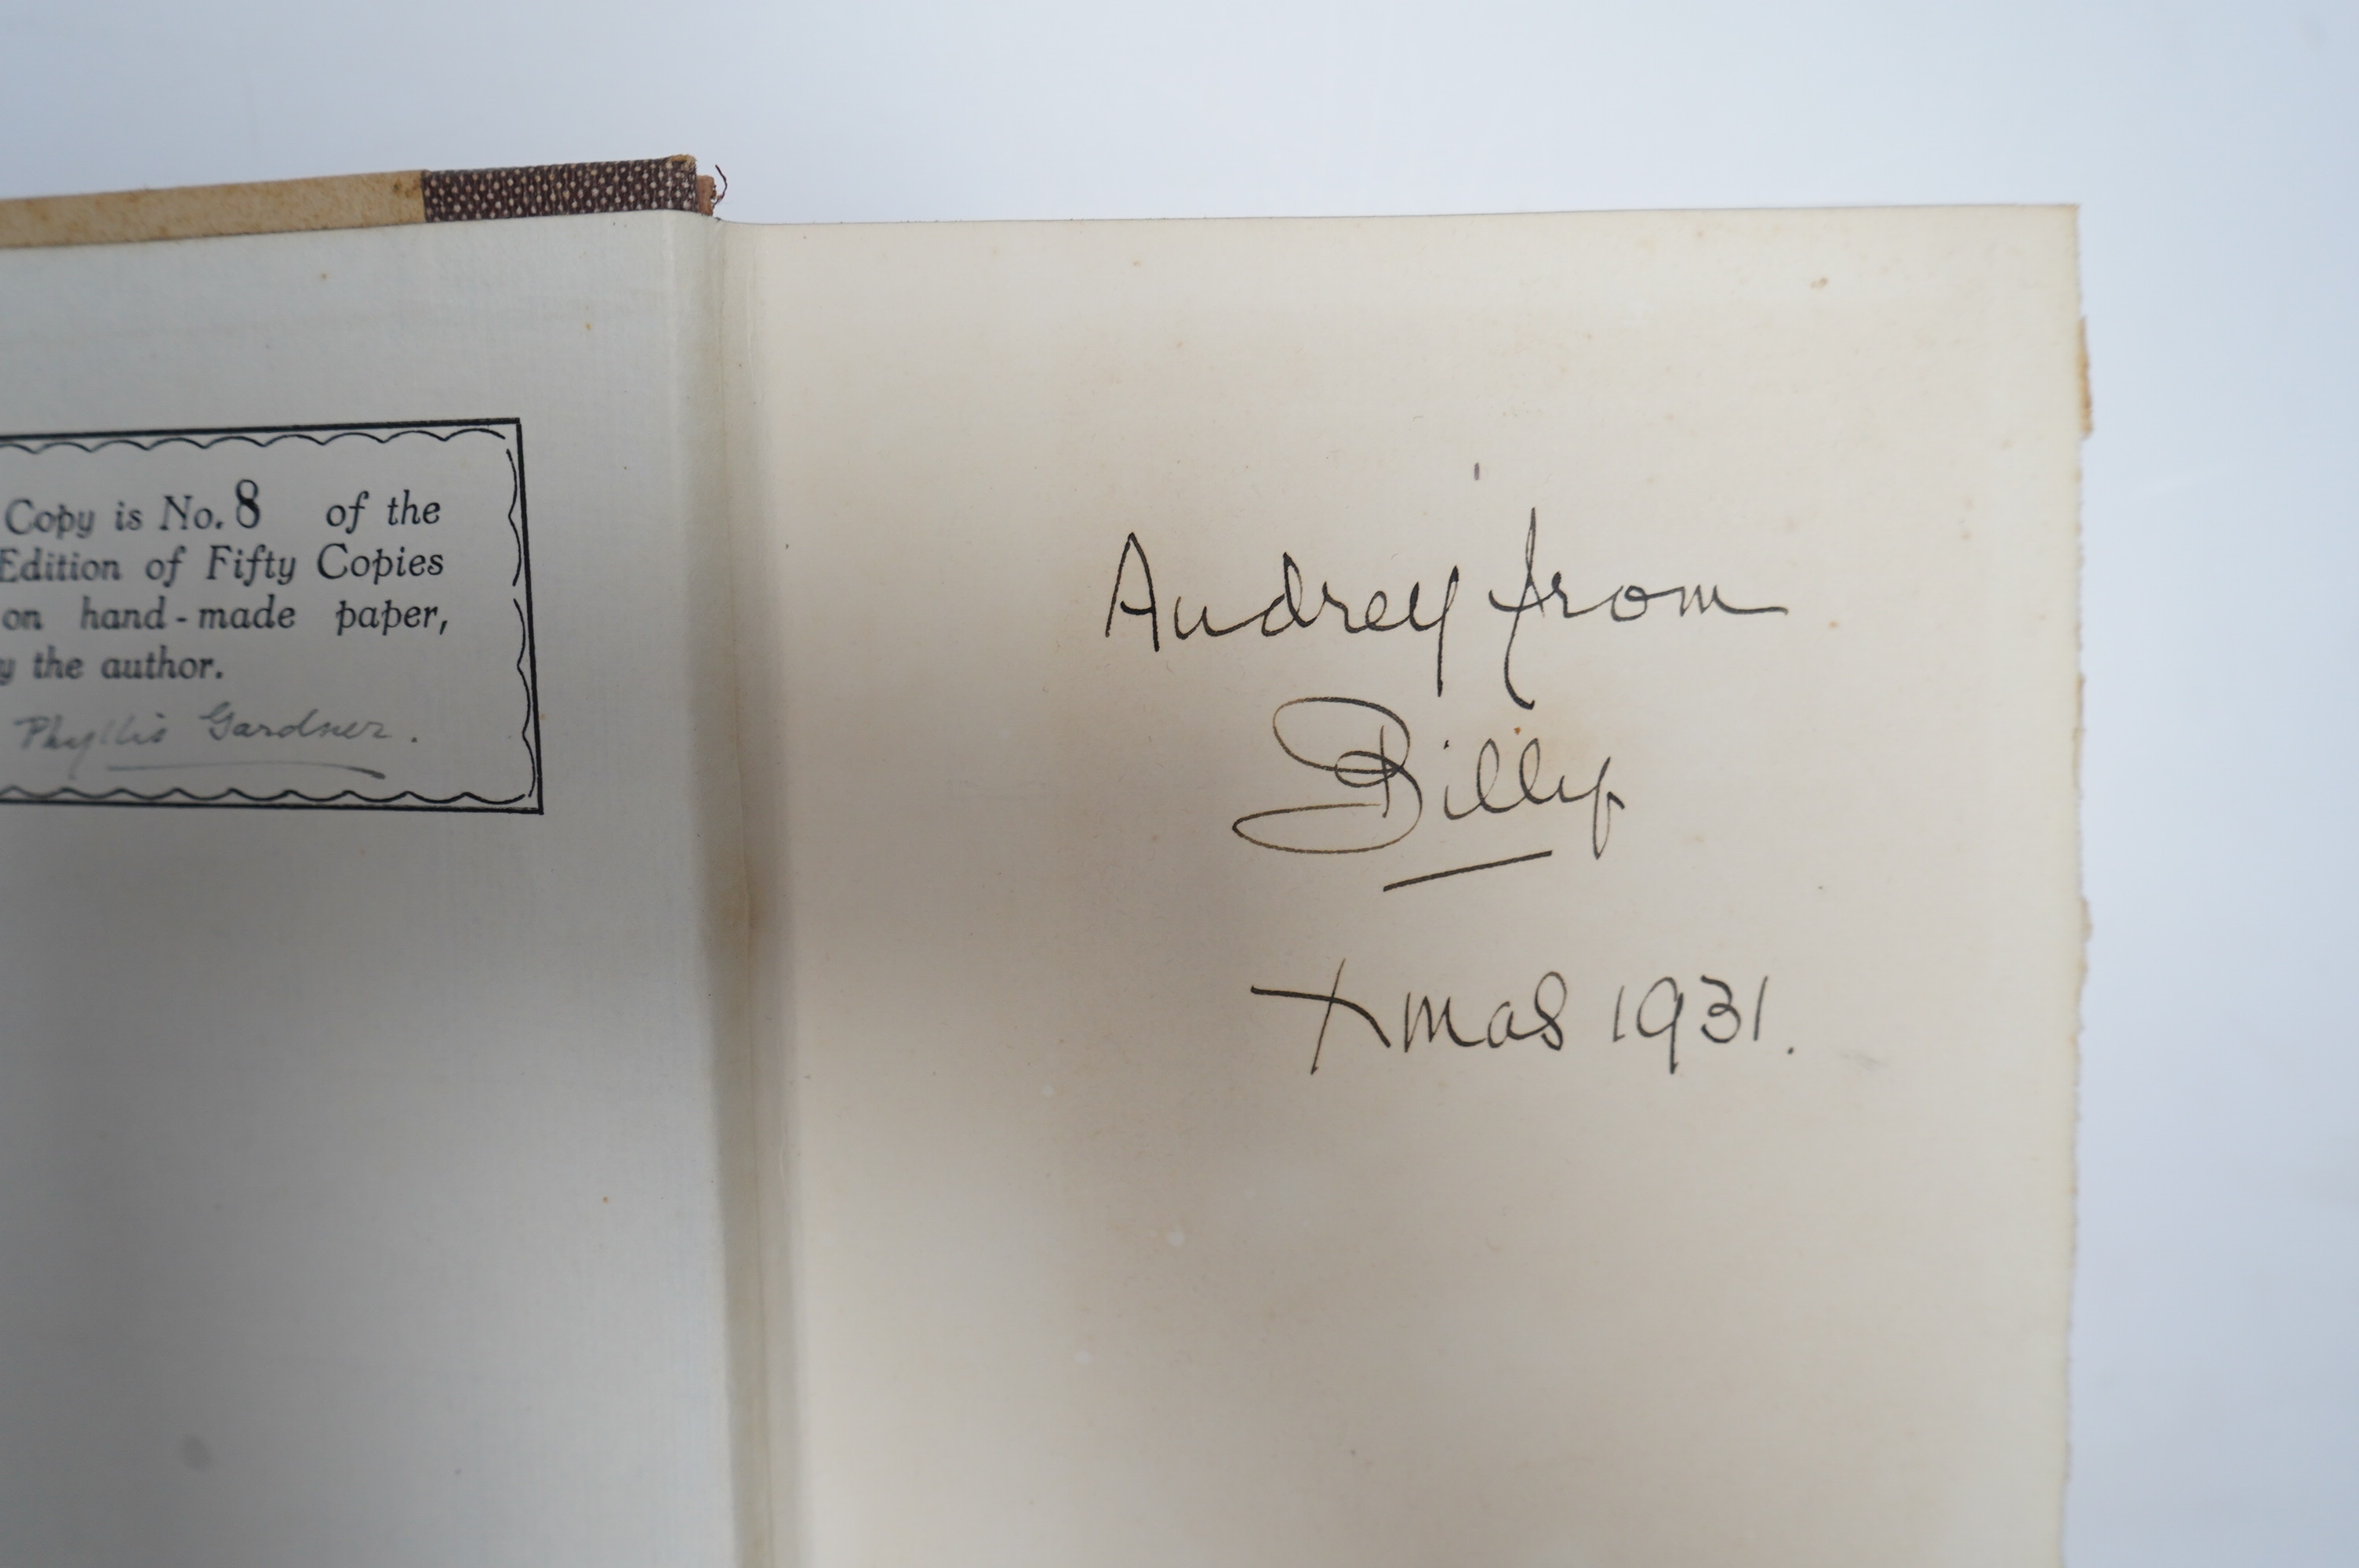 Copy is No. 8 of the
Edition of Fifty Copies
on hand-made paper,
y the author.
Phyllis Gardner.
Audrey from
Billy
Xmas 1931.